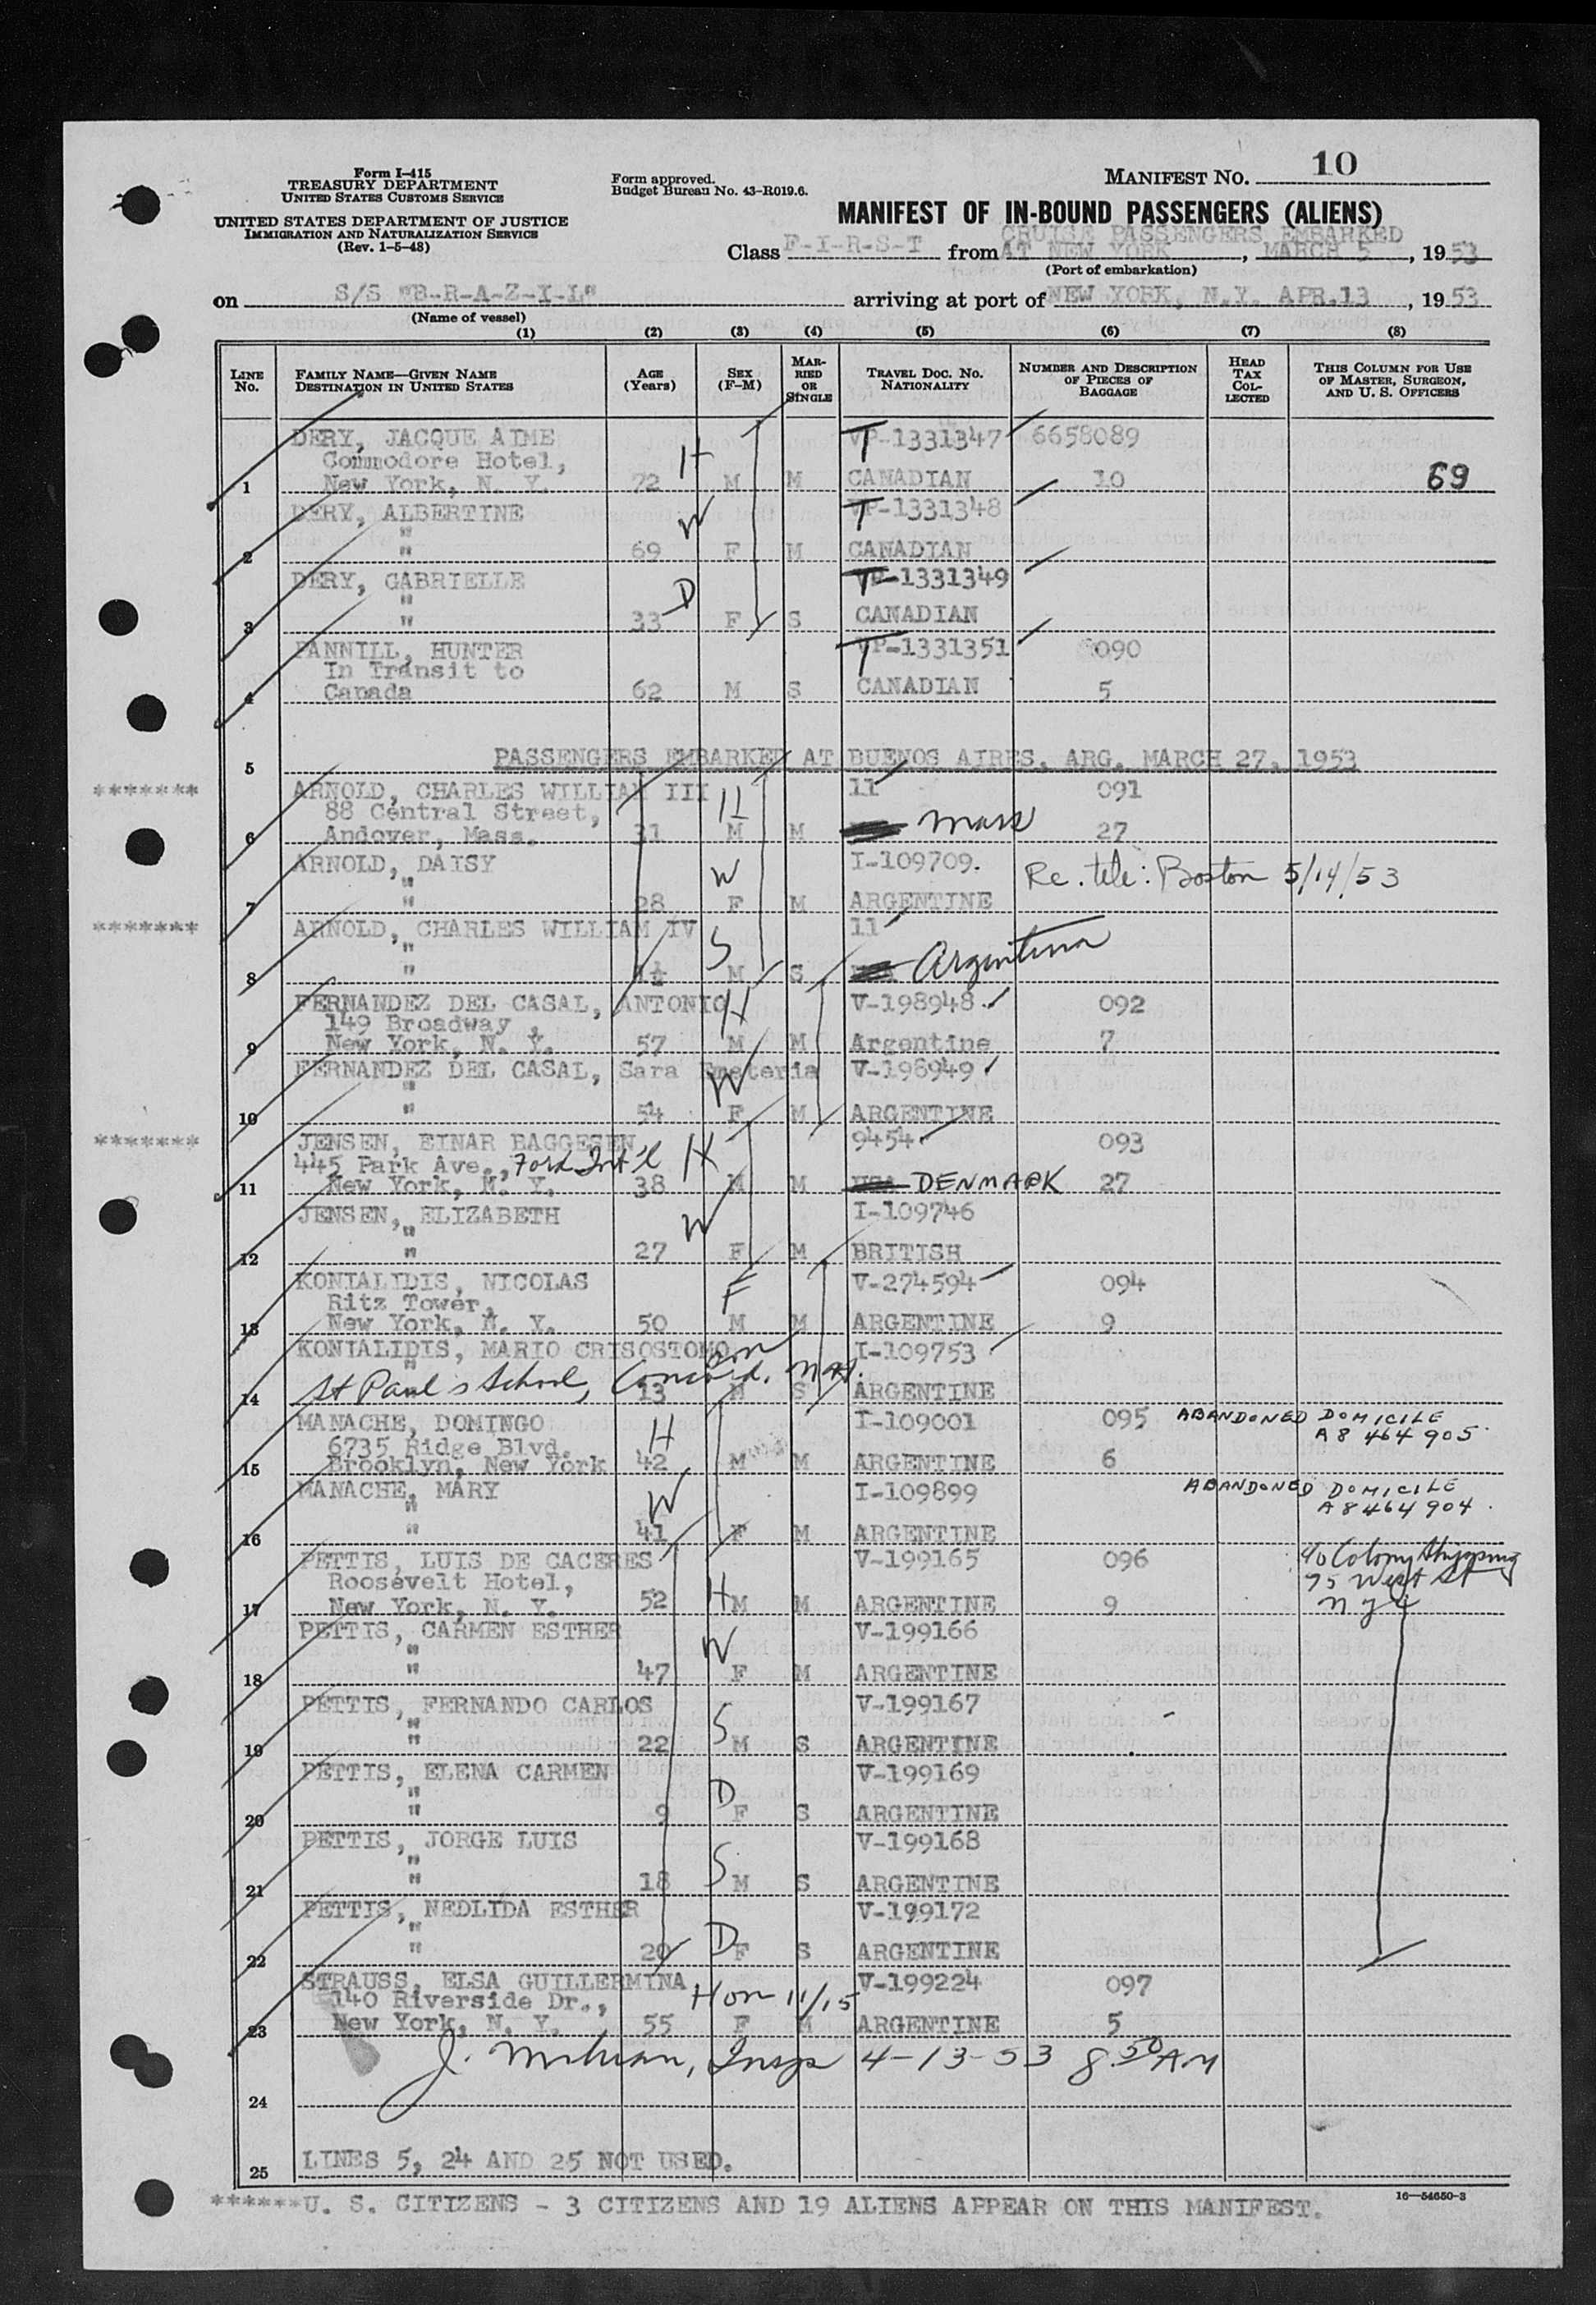 Form I-415
TREASURY DEPARTMENT
UNITED STATES CUSTOMS SERVICE
UNITED STATES DEPARTMENT OF JUSTICE
IMMIGRATION AND NATURALIZATION SERVICE
(Rev. 1-5-48)
Form approved.
Budget Bureau No. 43-R019.6.
MANIFEST NO. 10
MANIFEST OF IN-BOUND PASSENGERS (ALIENS)
CRUISE PASSENGERS EMBARKED
Class F-I-R-S-T from AT NEW YORK, MARCH 5, 1953
(Port of embarkation)
on S/S "B-R-A-Z-I-L" arriving at port of NEW YORK, N.Y. APR.13, 1953
(Name of vessel)
(1) (2) (3) (4) (5) (6) (7) (8)
LINE No. FAMILY NAME—GIVEN NAME DESTINATION IN UNITED STATES AGE (Years) SEX (F-M) MARRIED OR SINGLE TRAVEL DOC. NO. NATIONALITY NUMBER AND DESCRIPTION OF PIECES OF BAGGAGE HEAD TAX COLLECTED THIS COLUMN FOR USE OF MASTER, SURGEON, AND U. S. OFFICERS
DERY, JACQUE AIME VP-1331347 6658089
Commodore Hotel, H
1 New York, N. Y. 72 M M CANADIAN 10 69
DERY, ALBERTINE W VP-1331348
"
2 " 69 F M CANADIAN
DERY, GABRIELLE D VP-1331349
"
3 " 33 F S CANADIAN
PANNILL, HUNTER VP-1331351 090
In Transit to
4 Canada 62 M S CANADIAN 5
5 PASSENGERS EMBARKED AT BUENOS AIRES, ARG. MARCH 27, 1953
******* ARNOLD, CHARLES WILLIAM III H 11 091
88 Central Street,
6 Andover, Mass. 31 M M Mass 27
ARNOLD, DAISY W I-109709. Re. tele: Boston 5/14/53
"
7 " 28 F M ARGENTINE
******* ARNOLD, CHARLES WILLIAM IV S 11
"
8 " 1½ M S Argentina
FERNANDEZ DEL CASAL, ANTONIO H V-198948 092
149 Broadway ,
9 New York, N. Y. 57 M M Argentine 7
FERNANDEZ DEL CASAL, Sara Emeteria W V-198949
10 " 54 F M ARGENTINE
******* JENSEN, EINAR BAGGESEN 9454 093
445 Park Ave., Ford Int'l H
11 New York, N. Y. 38 M M USA DENMARK 27
JENSEN, ELIZABETH W I-109746
"
12 " 27 F M BRITISH
KONIALIDIS, NICOLAS F V-274594 094
Ritz Tower,
13 New York, N. Y. 50 M M ARGENTINE 9
KONIALIDIS, MARIO CRISOSTOMO son I-109753
"
14 St Paul's School, Concord, N.H. 13 M S ARGENTINE
MANACHE, DOMINGO H I-109001 095 ABANDONED DOMICILE
6735 Ridge Blvd. A8 464 905
15 Brooklyn, New York 42 M M ARGENTINE 6
MANACHE, MARY W I-109899 ABANDONED DOMICILE
" A8464904
16 " 41 F M ARGENTINE
PETTIS, LUIS DE CACERES V-199165 096 c/o Colony Shipping
Roosevelt Hotel, H 75 West St
17 New York, N. Y. 52 M M ARGENTINE 9 NYC
PETTIS, CARMEN ESTHER W V-199166
"
18 " 47 F M ARGENTINE
PETTIS, FERNANDO CARLOS S V-199167
"
19 " 22 M S ARGENTINE
PETTIS, ELENA CARMEN D V-199169
"
20 " 9 F S ARGENTINE
PETTIS, JORGE LUIS S V-199168
"
21 " 18 M S ARGENTINE
PETTIS, NEDLIDA ESTHER D V-199172
"
22 " 20 F S ARGENTINE
STRAUSS, ELSA GUILLERMINA V-199224 097
140 Riverside Dr., 11/15
23 New York, N. Y. 55 F M ARGENTINE 5
J. Insp 4-13-53 8 50 AM
24
25 LINES 5, 24 AND 25 NOT USED.
16—54650-3
******U. S. CITIZENS - 3 CITIZENS AND 19 ALIENS APPEAR ON THIS MANIFEST.